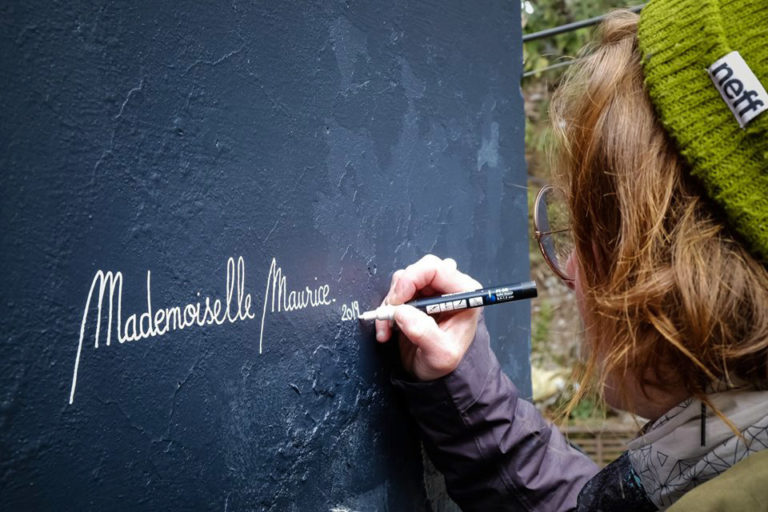 Mademoiselle Maurice. 2019
neff